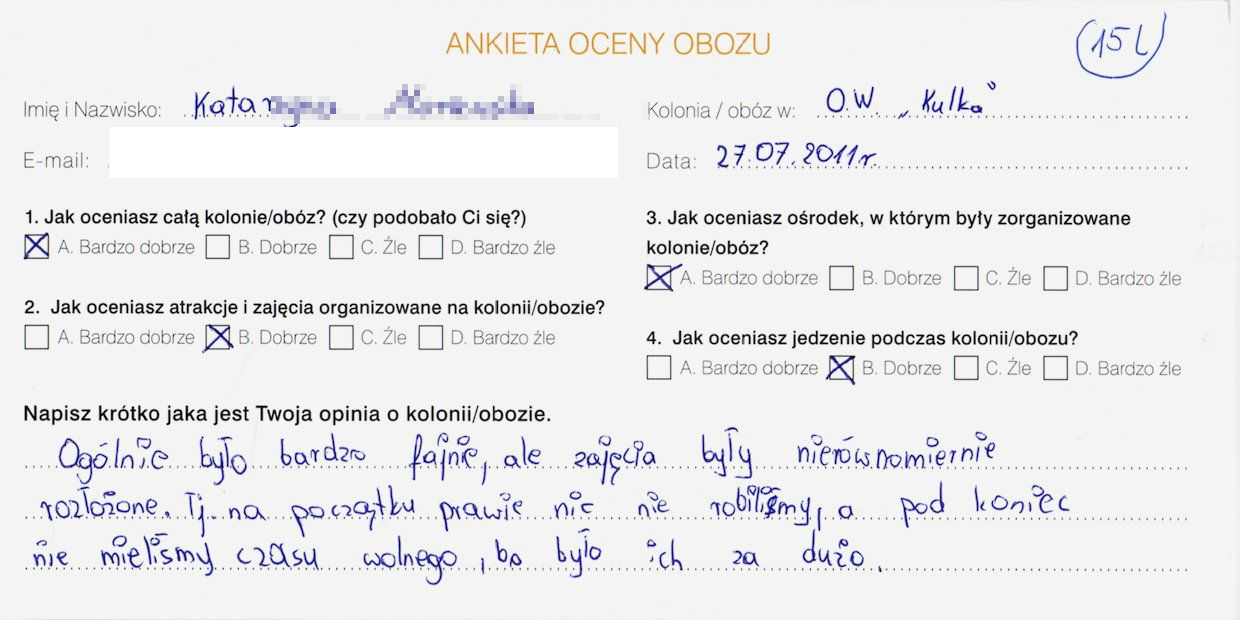 ANKIETA OCENY OBOZU
15 l
Imię i Nazwisko:
Kolonia / obóz w: O.W. „Kulka”
E-mail:
Data: 27.07.2011r.
1. Jak oceniasz całą kolonie/obóz? (czy podobało Ci się?)
A. Bardzo dobrze B. Dobrze C. Źle D. Bardzo źle
2. Jak oceniasz atrakcje i zajęcia organizowane na kolonii/obozie?
A. Bardzo dobrze B. Dobrze C. Źle D. Bardzo źle
3. Jak oceniasz ośrodek, w którym były zorganizowane
kolonie/obóz?
A. Bardzo dobrze B. Dobrze C. Źle D. Bardzo źle
4. Jak oceniasz jedzenie podczas kolonii/obozu?
A. Bardzo dobrze B. Dobrze C. Źle D. Bardzo źle
Napisz krótko jaka jest Twoja opinia o kolonii/obozie.
Ogólnie było bardzo fajnie, ale zajęcia były nierównomiernie
rozłożone. Tj. na początku prawie nic nie robiliśmy, a pod koniec
nie mieliśmy czasu wolnego, bo było ich za dużo.